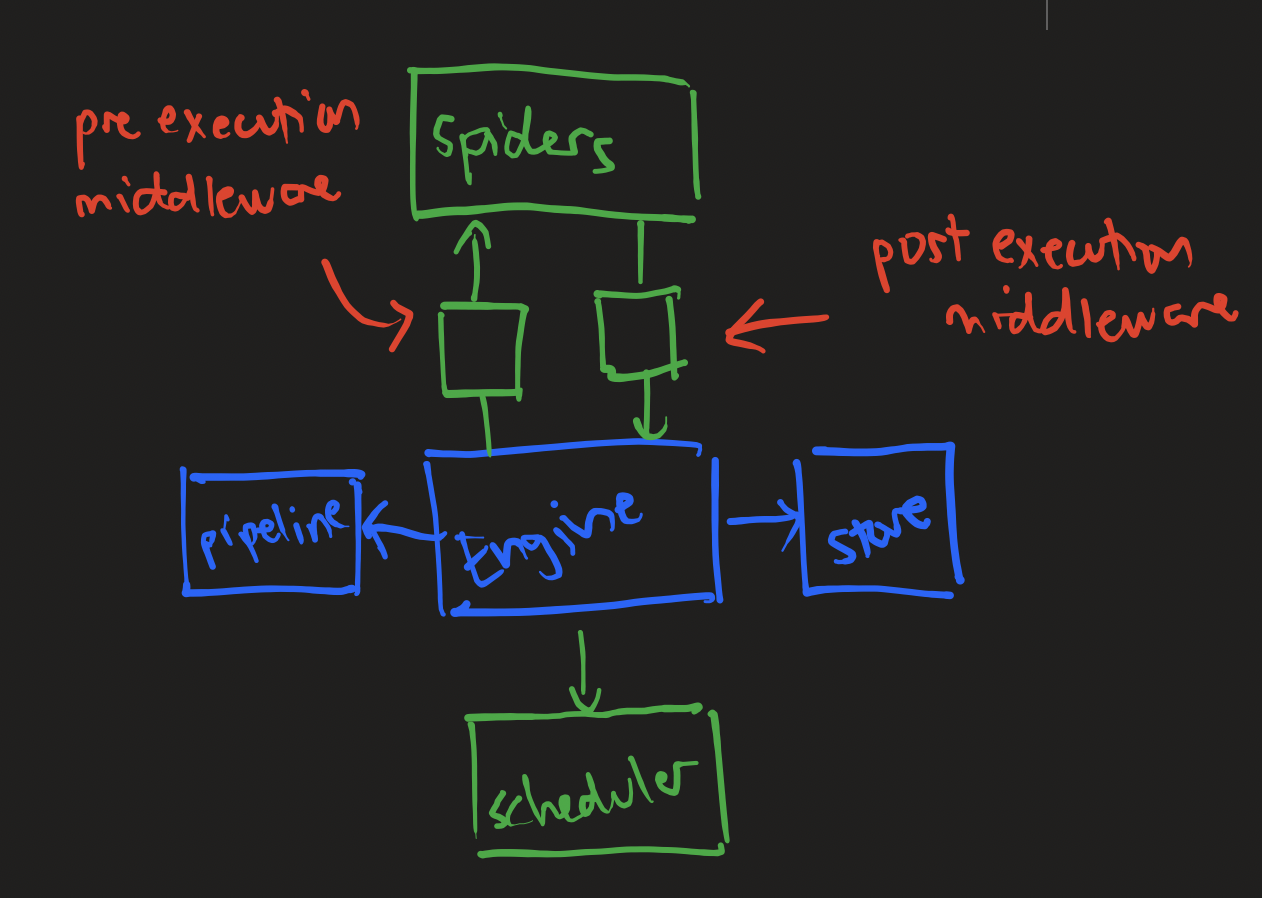 pre execution
middleware
spiders
post execution
middleware
pipeline
Engine
store
scheduler